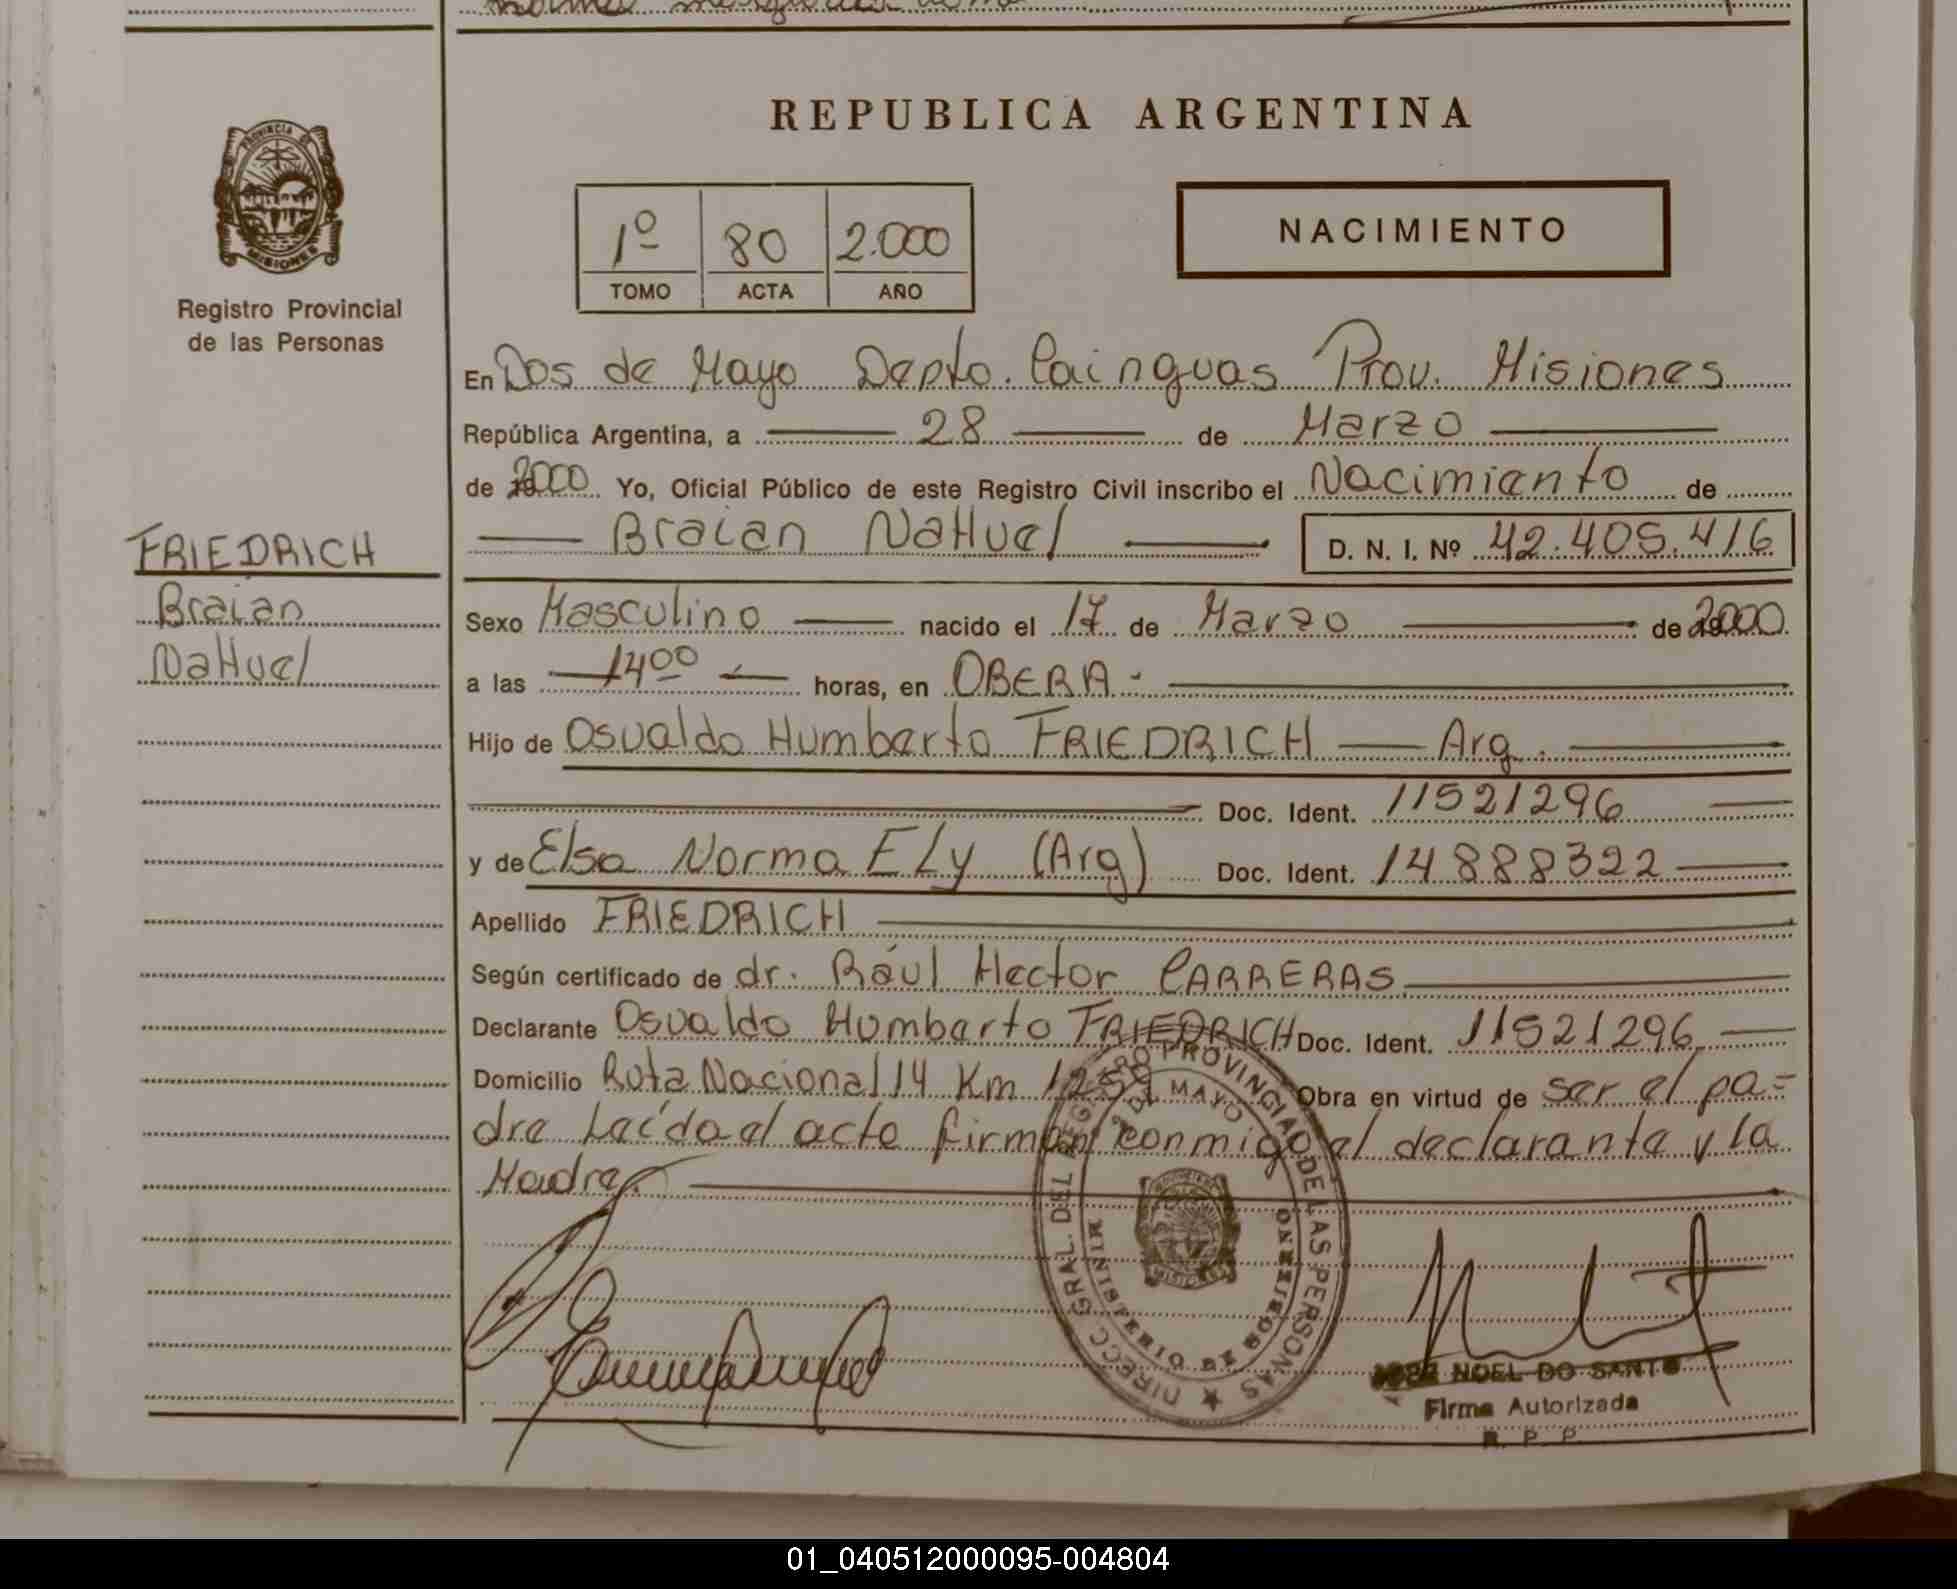 REPUBLICA ARGENTINA
PROVINCIA DE
MISIONES
Registro Provincial
de las Personas
1º 80 2.000
TOMO ACTA AÑO
NACIMIENTO
En Dos de Mayo Depto. Cainguas Prov. Misiones
República Argentina, a 28 de Marzo
de 2000 Yo, Oficial Público de este Registro Civil inscribo el Nacimiento de
Braian NaHuel D. N. I. Nº 42.405.416
FRIEDRICH
Braian
NaHuel
Sexo Masculino nacido el 17 de Marzo de 2000
a las 14 00 horas, en OBERA.
Hijo de Osvaldo Humberto FRIEDRICH Arg.
Doc. Ident. 11521296
y de Elsa Norma ELy (Arg) Doc. Ident. 14888322
Apellido FRIEDRICH
Según certificado de dr. Rául Hector CARRERAS
Declarante Osvaldo Humberto FRIEDRICH Doc. Ident. 11521296
Domicilio Ruta Nacional 14 Km Obra en virtud de ser el pa=
dre Leída el acto firman conmigo el declarante y la
Madre.
DIRECC. GRAL. DEL REGISTRO PROVINCIAL DE LAS PERSONAS
2 DE MAYO
MINISTERIO DE GOBIERNO
NOEL DO SANTO
Firma Autorizada
R. P. P.
01_040512000095-004804